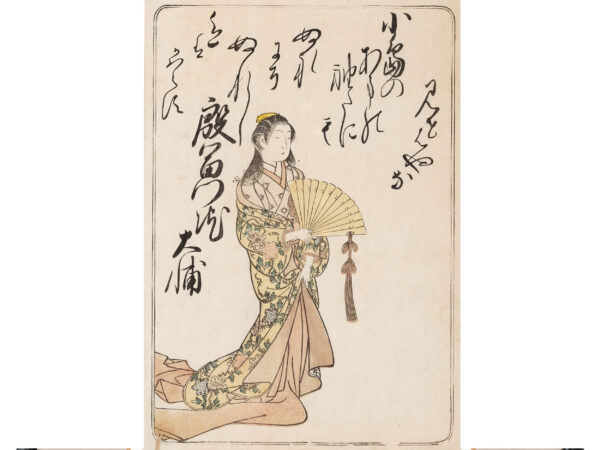 見せはやな
小島の
あまの
袖たに
も
ぬれ
にそ
ぬれし
色は
かはらす
殷富門院
大輔